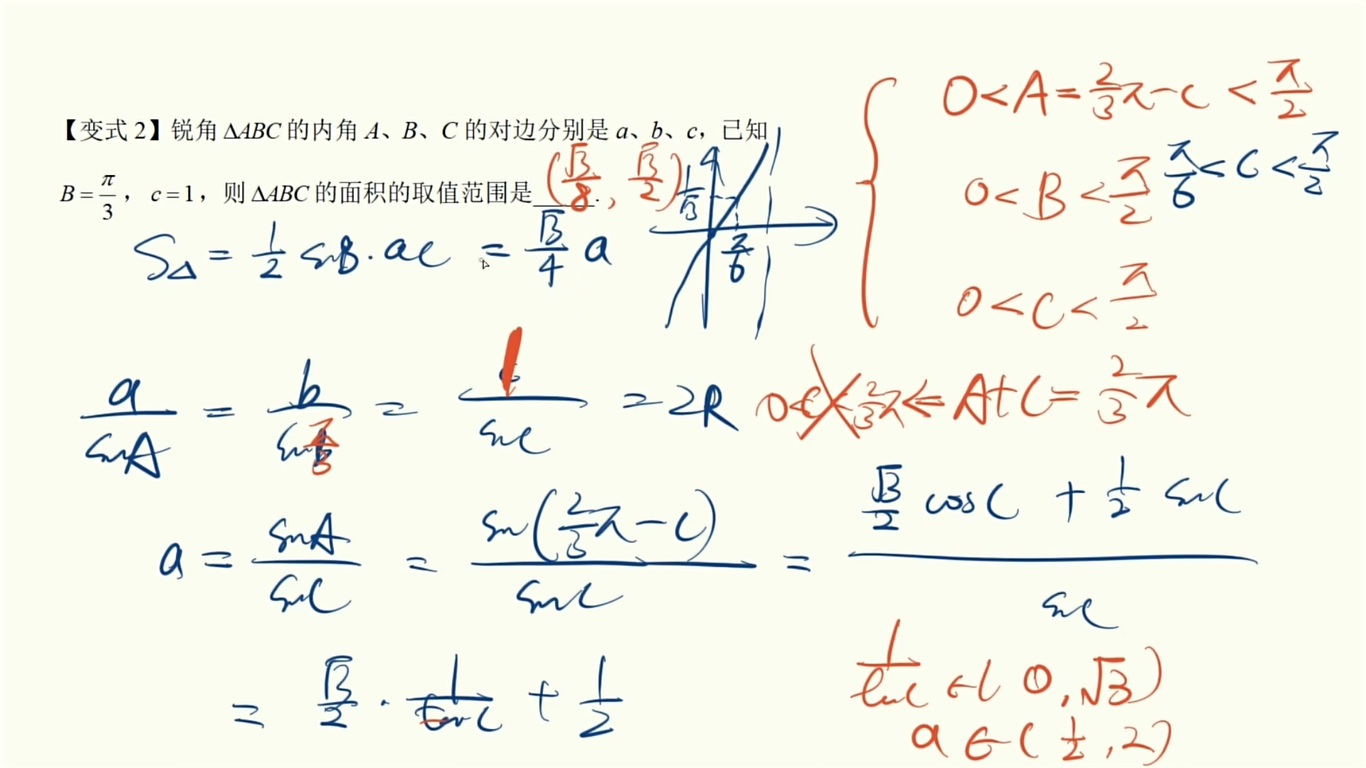 【变式 2】锐角 ΔABC 的内角 A、B、C 的对边分别是 a、b、c，已知
B = π/3，c = 1，则 ΔABC 的面积的取值范围是 (√3/8, √3/2).
S△ = 1/2 sinB·ac = √3/4 a
1/√3
π/6
0 < A = 2/3π - C < π/2
0 < B < π/2
π/6 < C < π/2
0 < C < π/2
a/sinA = b/sinπ/3 = 1/sinC = 2R
0 < C < 2/3π ⇐ A+C = 2/3π
a = sinA/sinC = sin(2/3π - C)/sinC = (√3/2 cosC + 1/2 sinC)/sinC
= √3/2 · 1/tanC + 1/2
1/tanC ∈ (0, √3)
a ∈ (1/2, 2)